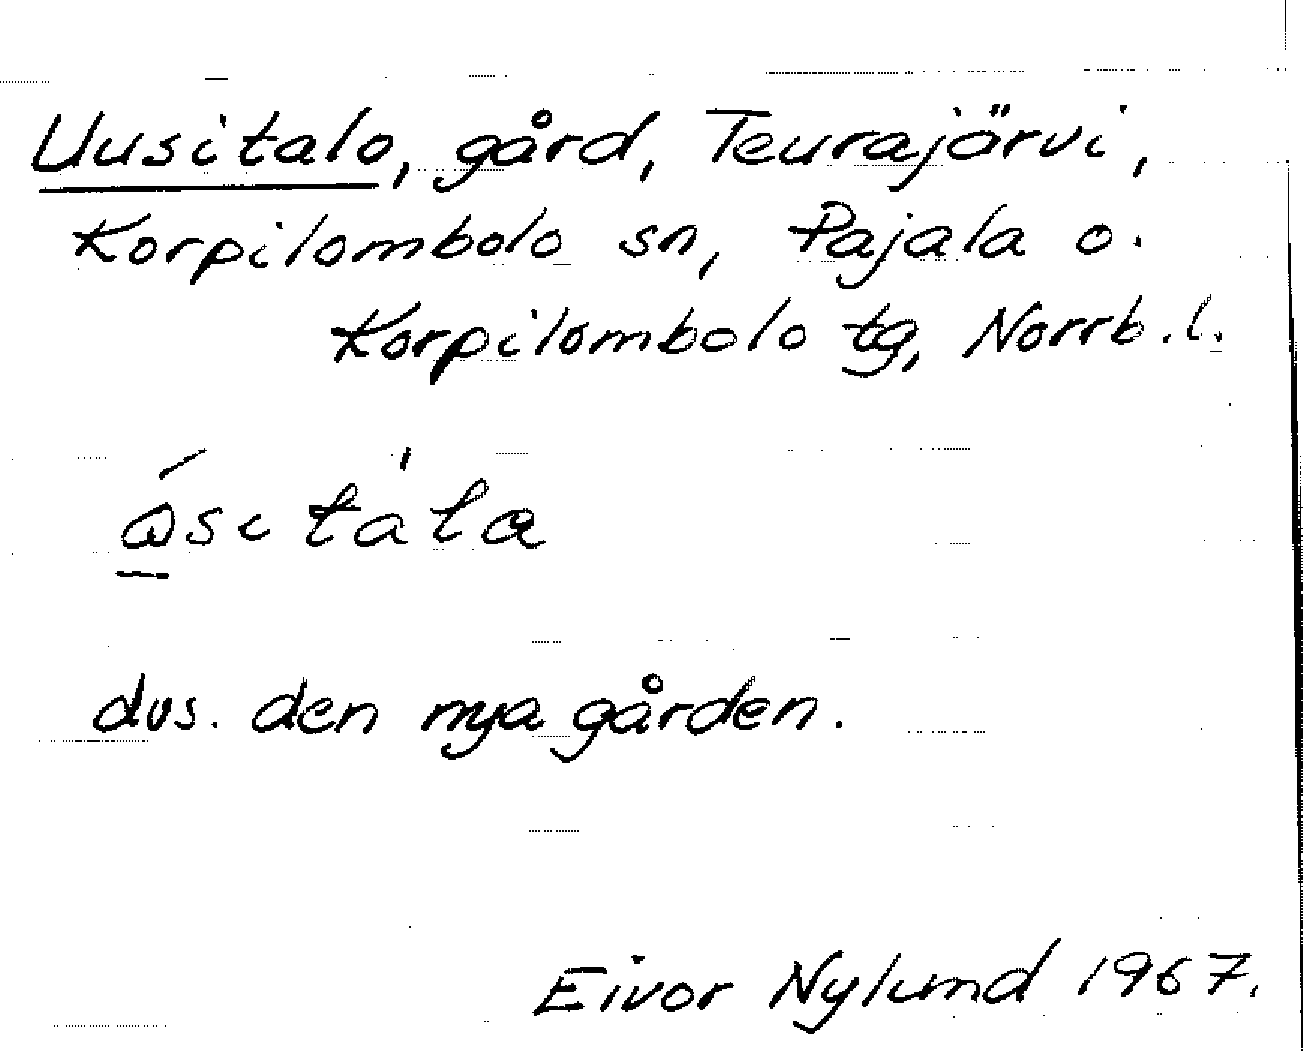 Uusitalo, gård, Teurajärvi,
Korpilombolo sn, Pajala o.
Korpilombolo tg, Norrb. l.
dvs. den nya gården.
Eivor Nylund 1967.